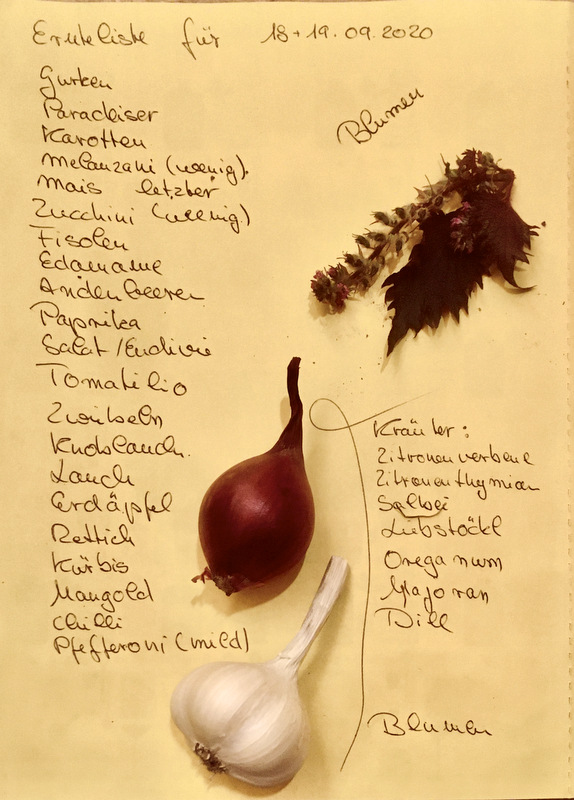 Ernteliste für 18+19.09.2020
Blumen
Gurken
Paradeiser
Karotten
Melanzani (wenig).
Mais letzter
Zucchini (wenig.)
Fisolen
Edamame
Andenbeeren
Paprika
Salat/Endivie
Tomatilio
Zwiebeln
Knoblauch.
Lauch
Erdäpfel
Rettich
Kürbis
Mangold
Chilli
Pfefferoni (mild)
Kräuter:
Zitronenverbene
Zitronenthymian
Salbei
Liebstöckl
Oreganum
Majoran
Dill
Blumen